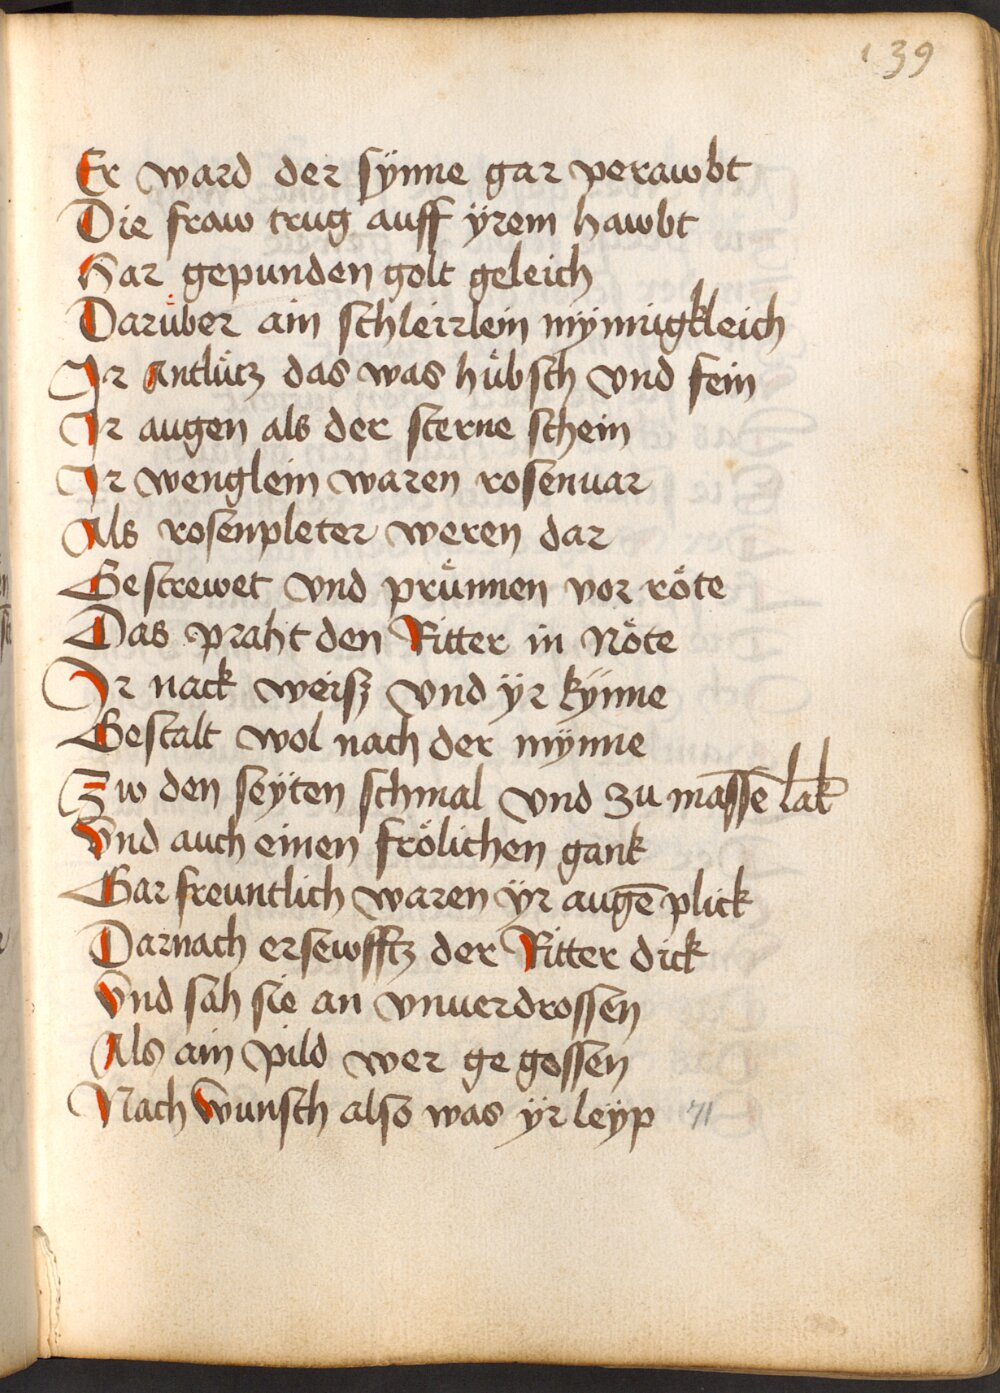 139
Er ward der sÿnne gar perawbt
Die fraw trug auff ÿrem hawbt
Har gepunden golt geleich
Darüber ain schleirlein mÿnnigkleich
Ir Antlütz das was hübsch vnd fein
Ir augen als der sterne schein
Ir wenglein waren rosenuar
Als rosenpleter weren dar
Gestrewet vnd prünnen vor röte
Das praht den Ritter in Nöte
Ir nack weisz vnd ÿr kÿnne
Gestalt wol nach der mÿnne
Zw den seÿten schmal vnd zu massē lāk
Vnd auch einen frölichen gank
Gar freuntlich waren ÿr augē plick
Darnach ersewfftz der Ritter dick
Vnd sah sie an vnuerdrossen
Als ain pild wer ge gossen
Nach wunsch also was ÿr leÿp 71